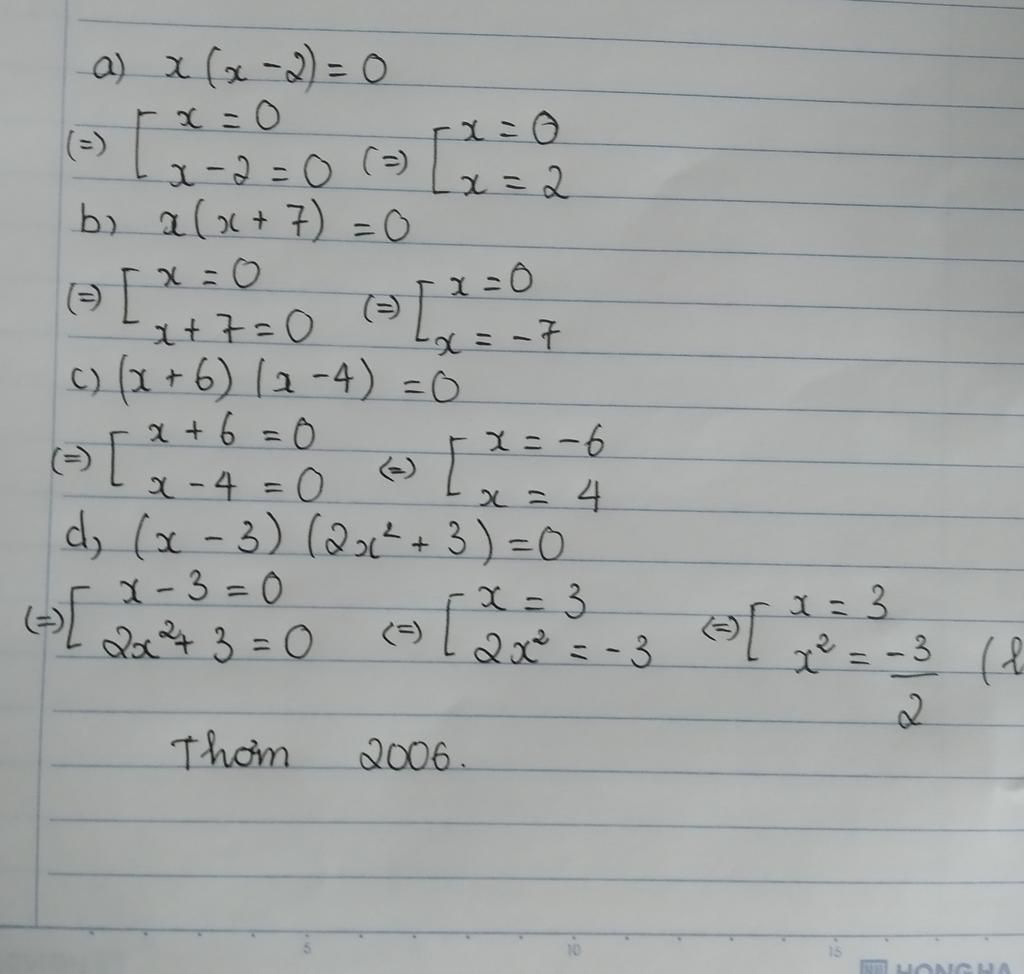 a) x(x-2)=0
(=) [ x=0 x-2=0 (=) [ x=0 x=2
b) x(x+7)=0
(=) [ x=0 x+7=0 (=) [ x=0 x=-7
c) (x+6)(x-4)=0
(=) [ x+6=0 x-4=0 (=) [ x=-6 x=4
d, (x-3)(2x²+3)=0
(=) [ x-3=0 2x²+3=0 (=) [ x=3 2x²=-3 (=) [ x=3 x²=-3/2 (l
Thơm 2006.
5 10 15
HONG HA